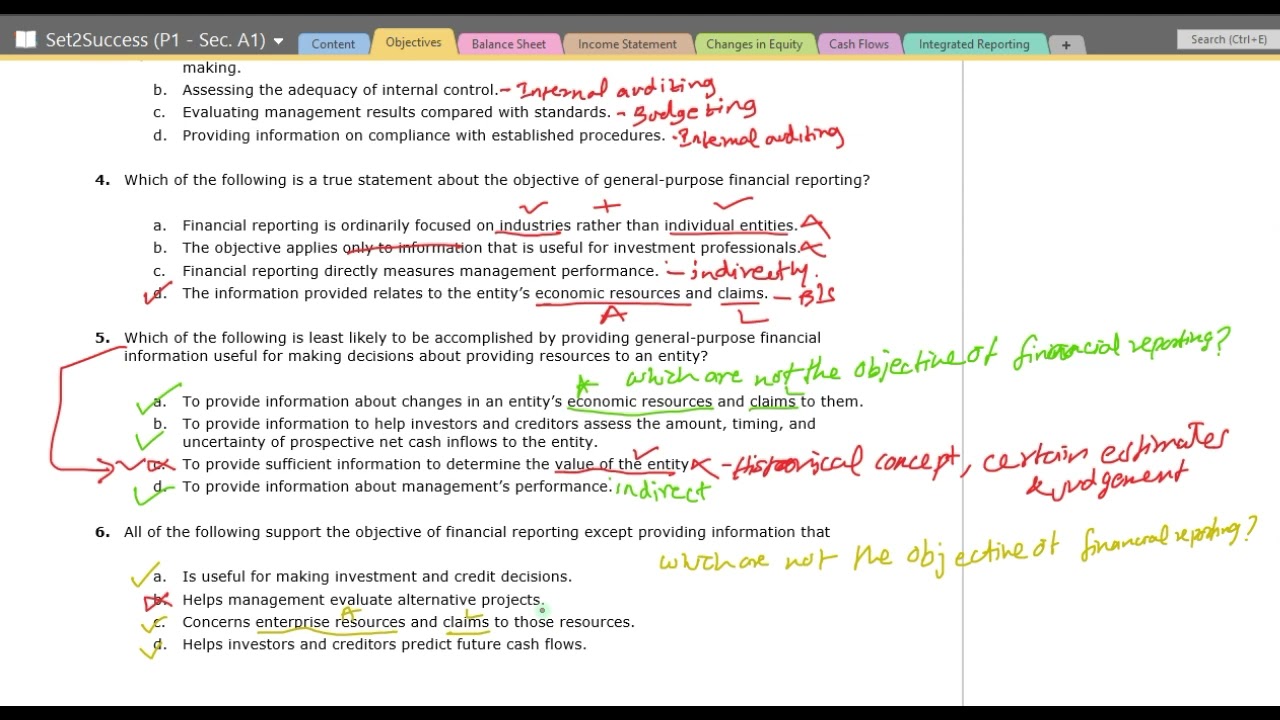 Set2Success (P1 - Sec. A1)
Content
Objectives
Balance Sheet
Income Statement
Changes in Equity
Cash Flows
Integrated Reporting
+
Search (Ctrl+E)
making.
b. Assessing the adequacy of internal control. - Internal auditing
c. Evaluating management results compared with standards. - Budgeting
d. Providing information on compliance with established procedures. - Internal auditing
4. Which of the following is a true statement about the objective of general-purpose financial reporting?
a. Financial reporting is ordinarily focused on industries rather than individual entities.
b. The objective applies only to information that is useful for investment professionals.
c. Financial reporting directly measures management performance. - indirectly.
d. The information provided relates to the entity's economic resources and claims. - B/S
A L
5. Which of the following is least likely to be accomplished by providing general-purpose financial
information useful for making decisions about providing resources to an entity?
which are not the objective of financial reporting?
A L
a. To provide information about changes in an entity's economic resources and claims to them.
b. To provide information to help investors and creditors assess the amount, timing, and
uncertainty of prospective net cash inflows to the entity.
c. To provide sufficient information to determine the value of the entity - Historical concept, certain estimates
& judgement
d. To provide information about management's performance. indirect
6. All of the following support the objective of financial reporting except providing information that
which are not the objective of financial reporting?
a. Is useful for making investment and credit decisions.
b. Helps management evaluate alternative projects.
A L
c. Concerns enterprise resources and claims to those resources.
d. Helps investors and creditors predict future cash flows.